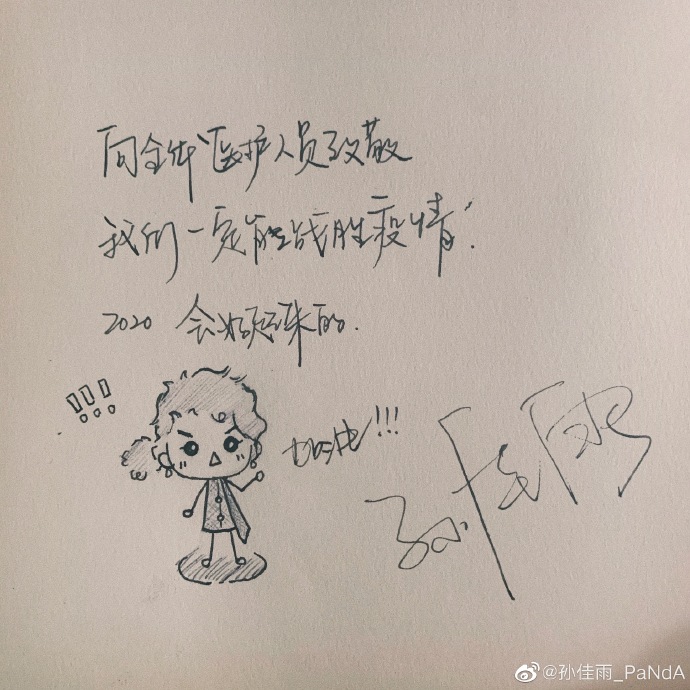 向全体医护人员致敬
我们一定能战胜疫情！
2020 会好起来的.
!!!
加油!!!
孙佳雨
@孙佳雨_PaNdA